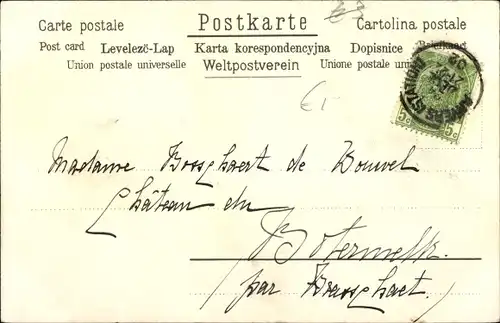 Carte postale Postkarte Cartolina postale
Post card Levelező-Lap Karta korespondencyjna Dopisnice Briefkaart
Union postale universelle Weltpostverein Unione postale
€-
ANVERS (STATION)
5c 5c
Madame Bosschaert de Bouvel
Château du
Botermelk
par Brasschaet.